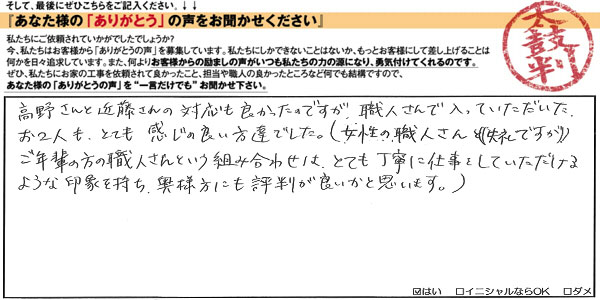 そして、最後にぜひこちらをご記入ください。↓↓
『あなた様の「ありがとう」の声をお聞かせください』
私たちにご依頼されていかがでしたでしょうか?
今、私たちはお客様から「ありがとうの声」を募集しています。私たちにしかできないことはないか、もっとお客様にして差し上げることは
何かを日々追求しています。また、何よりお客様からの励ましの声がいつも私たちの力の源になり、勇気付けてくれるのです。
ぜひ、私たちにお家の工事を依頼されて良かったこと、担当や職人の良かったところなど何でも結構ですので、
あなた様の「ありがとうの声」を"一言だけでも"お聞かせ下さい。
太鼓判
高野さんと近藤さんの対応も良かったのですが、職人さんで入っていただいた、
お2人も、とても 感じの良い方達でした。(女性の職人さんと((失礼ですが))
ご年輩の方の職人さんという組み合わせは、とても丁寧に仕事をしていただける
ような印象を持ち、奥様方にも評判が良いかと思います。)
☑はい □イニシャルならOK □ダメ